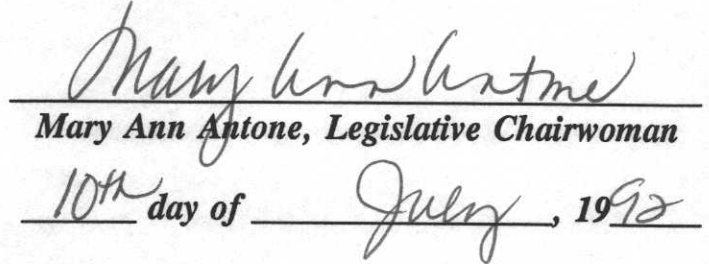 Mary Ann Antone
Mary Ann Antone, Legislative Chairwoman
10th day of July, 1992